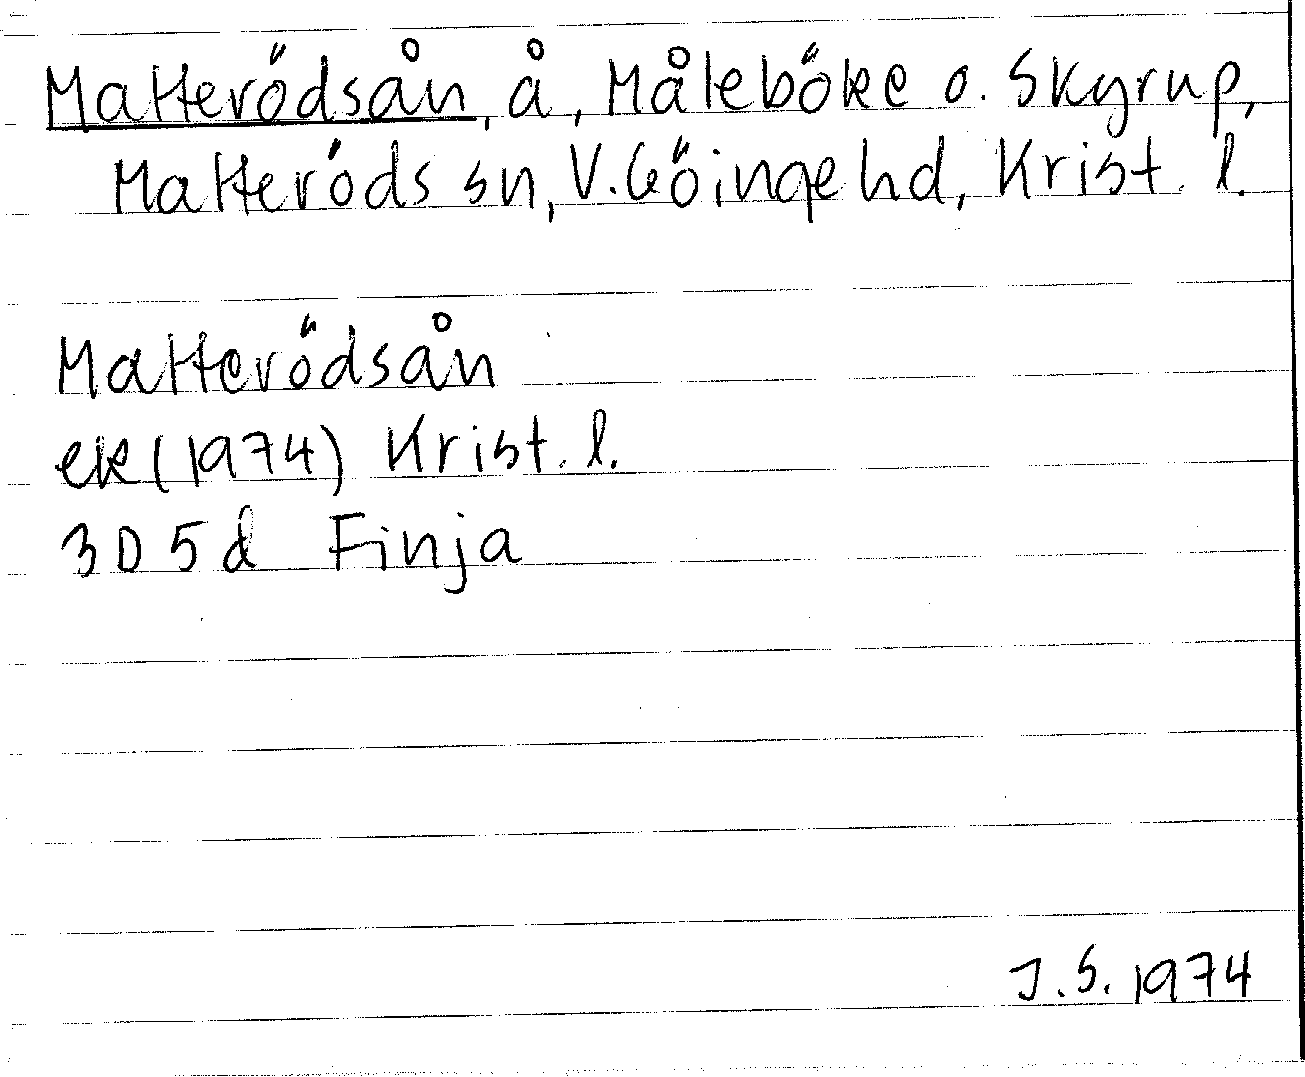 Matterödsån, å, Måleböke o. Skyrup,
Matteröds sn, V. Göinge hd, Krist. l.
Matterödsån
ek (1974) Krist. l.
3D 5d Finja
J.S. 1974